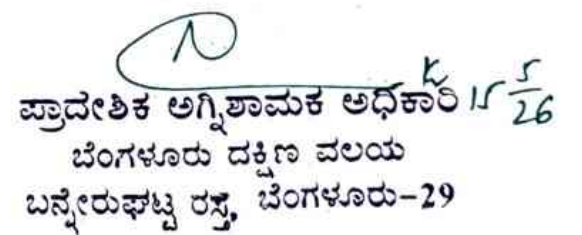 ಪ್ರಾದೇಶಿಕ ಅಗ್ನಿಶಾಮಕ ಅಧಿಕಾರಿ 15 5/26
ಬೆಂಗಳೂರು ದಕ್ಷಿಣ ವಲಯ
ಬನ್ನೇರುಘಟ್ಟ ರಸ್ತೆ, ಬೆಂಗಳೂರು-29